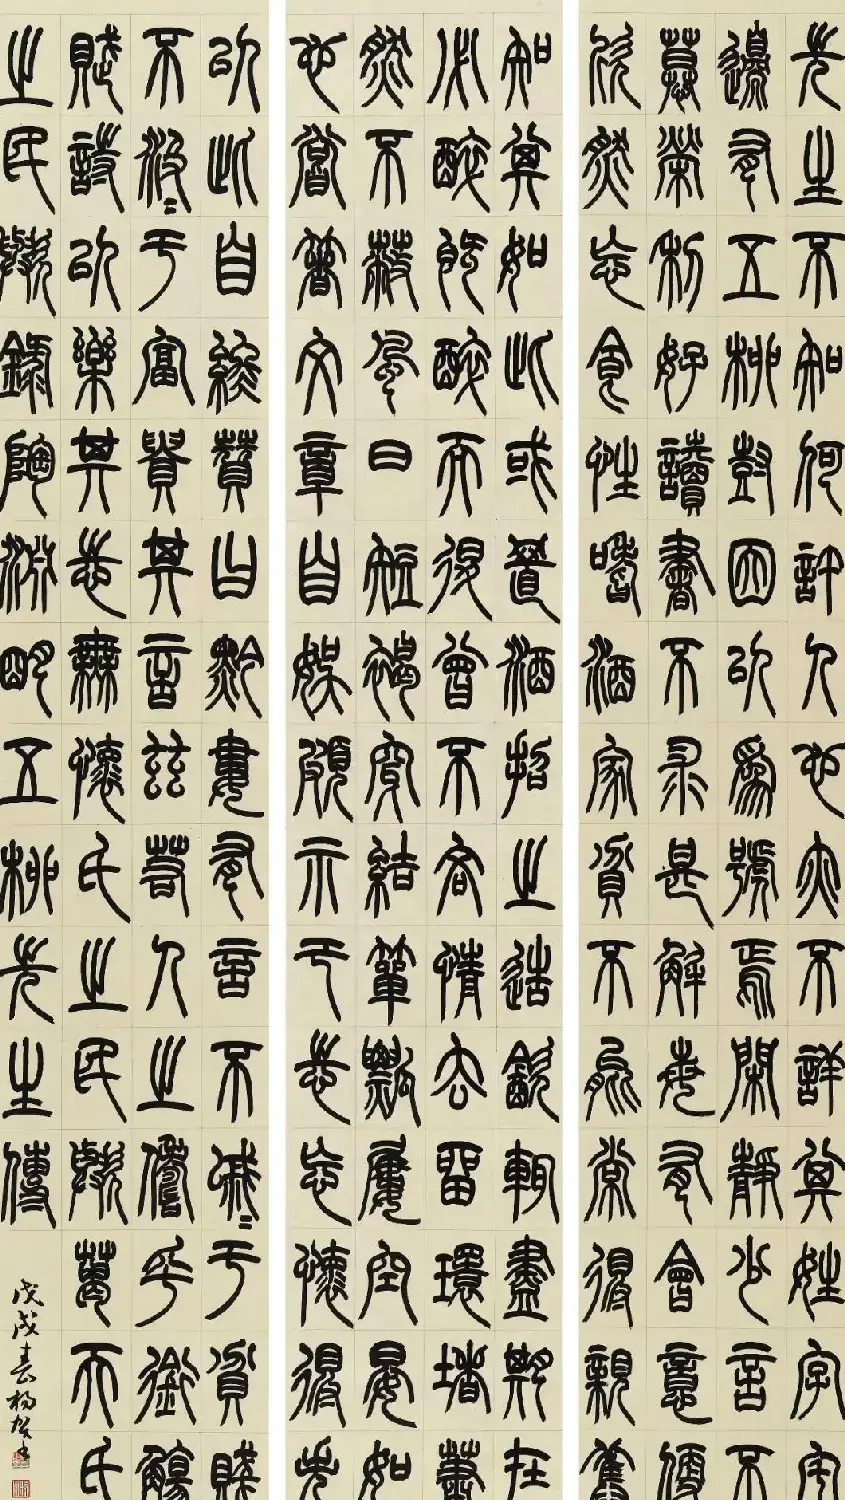 先生不知何許人也亦不詳其姓字宅
邊有五柳樹因以為號焉閑靜少言不
慕榮利好讀書不求甚解每有會意便
欣然忘食性嗜酒家貧不能常得親舊
知其如此或置酒招之造飲輒盡期在
必醉既醉而退曾不吝情去留環堵蕭
然不蔽風日短褐穿結簞瓢屢空晏如
也嘗箸文章自娛頗示己志忘懷得失
以此自終贊曰黔婁有言不戚〻于貧賤
不汲〻于富貴其言茲若人之儔乎銜觴
賦詩以樂其志無懷氏之民歟葛天氏
之民歟錄陶淵明五柳先生傳
戊戌春楊